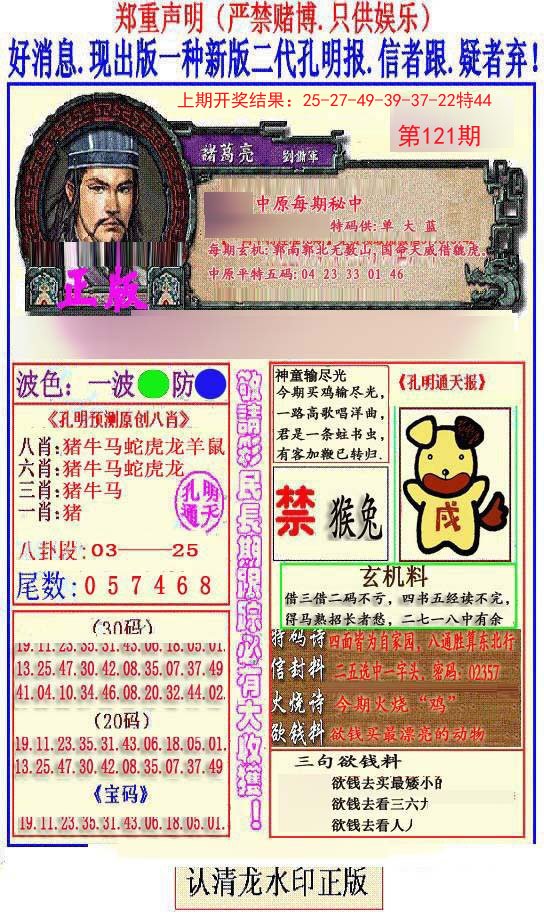 郑重声明（严禁赌博.只供娱乐）
好消息.现出版一种新版二代孔明报.信者跟.疑者弃!
上期开奖结果：25-27-49-39-37-22特44
第121期
諸葛亮 劉備軍
中原每期秘中
特码供:单 大 蓝
每期玄机:郭南郭北无数山,国令天威借魏虎.
中原平特五码:04 23 33 01 46
正版
波色：一波 防
《孔明预测原创八肖》
八肖:猪牛马蛇虎龙羊鼠
六肖:猪牛马蛇虎龙
三肖:猪牛马
一肖:猪
孔明
通天
八卦段:03——25
尾数:057468
(30码)
19.11.23.35.31.43.06.18.05.01.
13.25.47.30.42.08.35.07.37.49
41.04.10.34.46.08.20.32.44.02.
(20码)
19.11.23.35.31.43.06.18.05.01.
13.25.47.30.42.08.35.07.37.49
《宝码》
19.11.23.35.31.43.06.18.05.01.
敬請彩民長期跟踪必有大收獲！
神童输尽光
今期买鸡输尽光,
一路高歌唱洋曲,
君是一条蛀书虫,
有客加鞭已转归.
《孔明通天报》
禁 猴兔
戌
玄机料
借三借二码不亏，四书五经读不完,
得马熟招长者愁，二七一八中有余
特码诗 四面皆为自家园，八通胜算东北行
信封料 二五选中一字头，密码：02357
火烧诗 今期火烧“鸡”
欲钱料 欲钱买最漂亮的动物
三句欲钱料
欲钱去买最矮小的
欲钱去看三六
欲钱去看人
认清龙水印正版